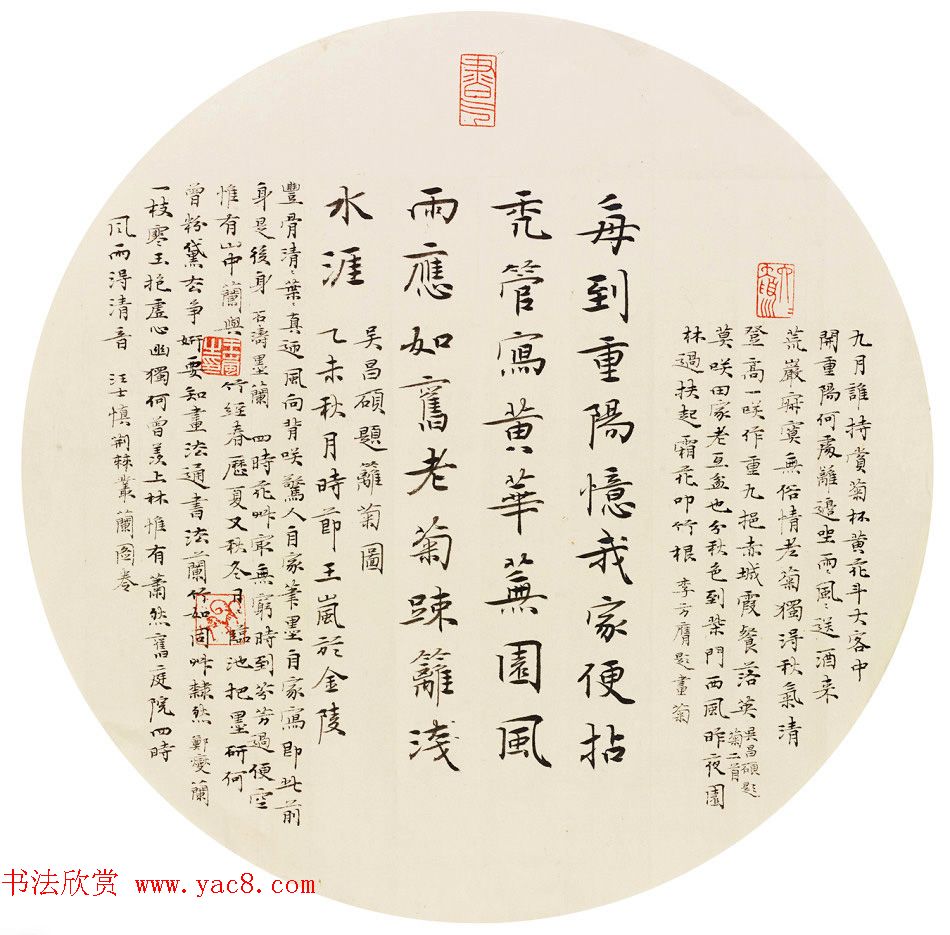 九月誰持賞菊杯黃花斗大客中
開重陽何處籬邊坐雨風〻送酒来
荒巖寂寞無俗情老菊獨得秋氣清
登高一咲作重九挹赤城霞餐落英 吳昌碩題
菊二首
莫咲田家老瓦盆也分秋色到柴門西風昨夜園
林過扶起霜花叩竹根 李方膺題畫菊
每到重陽憶我家便拈
禿管寫黃華蕪園風
雨應如舊老菊踈籬淺
水涯
吳昌碩題籬菊圖
乙未秋月時節王嵐於金陵
豐骨清〻葉〻真迎風向背咲驚人自家筆墨自家寫即此前
身是後身 石濤墨蘭 四時花艸最無窮時到芬芳過便空
惟有山中蘭與竹經春歷夏又秋冬日〻臨池把墨研何
曾粉黛去爭妍要知畫法通書法蘭竹如同艸隸然 鄭燮蘭
一枝寒玉抱虛心幽獨何曾羨上林惟有蕭然舊庭院四時
風雨得清音 汪士慎荆棘叢蘭圖卷
书法欣赏 www.yac8.com